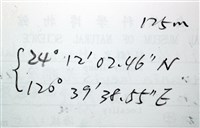 175m
24° 12' 02.46" N
120° 39' 38.55" E